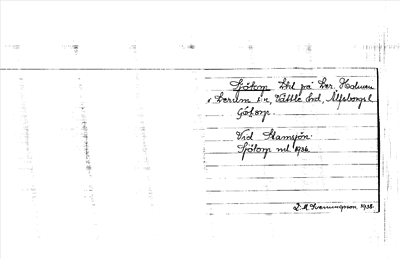 Sjötorp Lht på Ler. Holmen
i Lerum sn, Vättle hd, Älfsborgs l.
Götorp.
Vid Stamsjön.
Sjötorp ml 1936.
D. M. Hermingsson 1938.